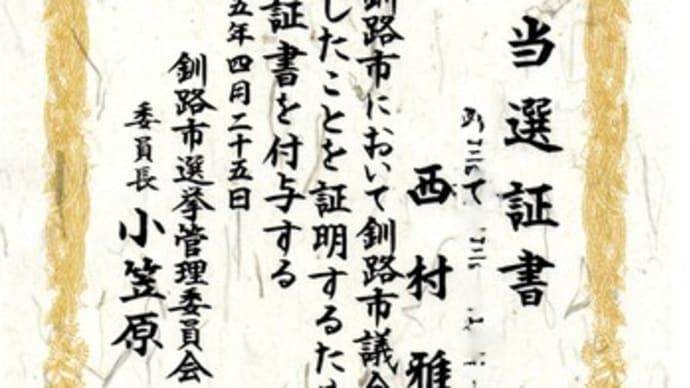 当選証書
西村雅
釧路市において釧路市議会
したことを証明するため
証書を付与する
五年四月二十五日
釧路市選挙管理委員会
委員長 小笠原